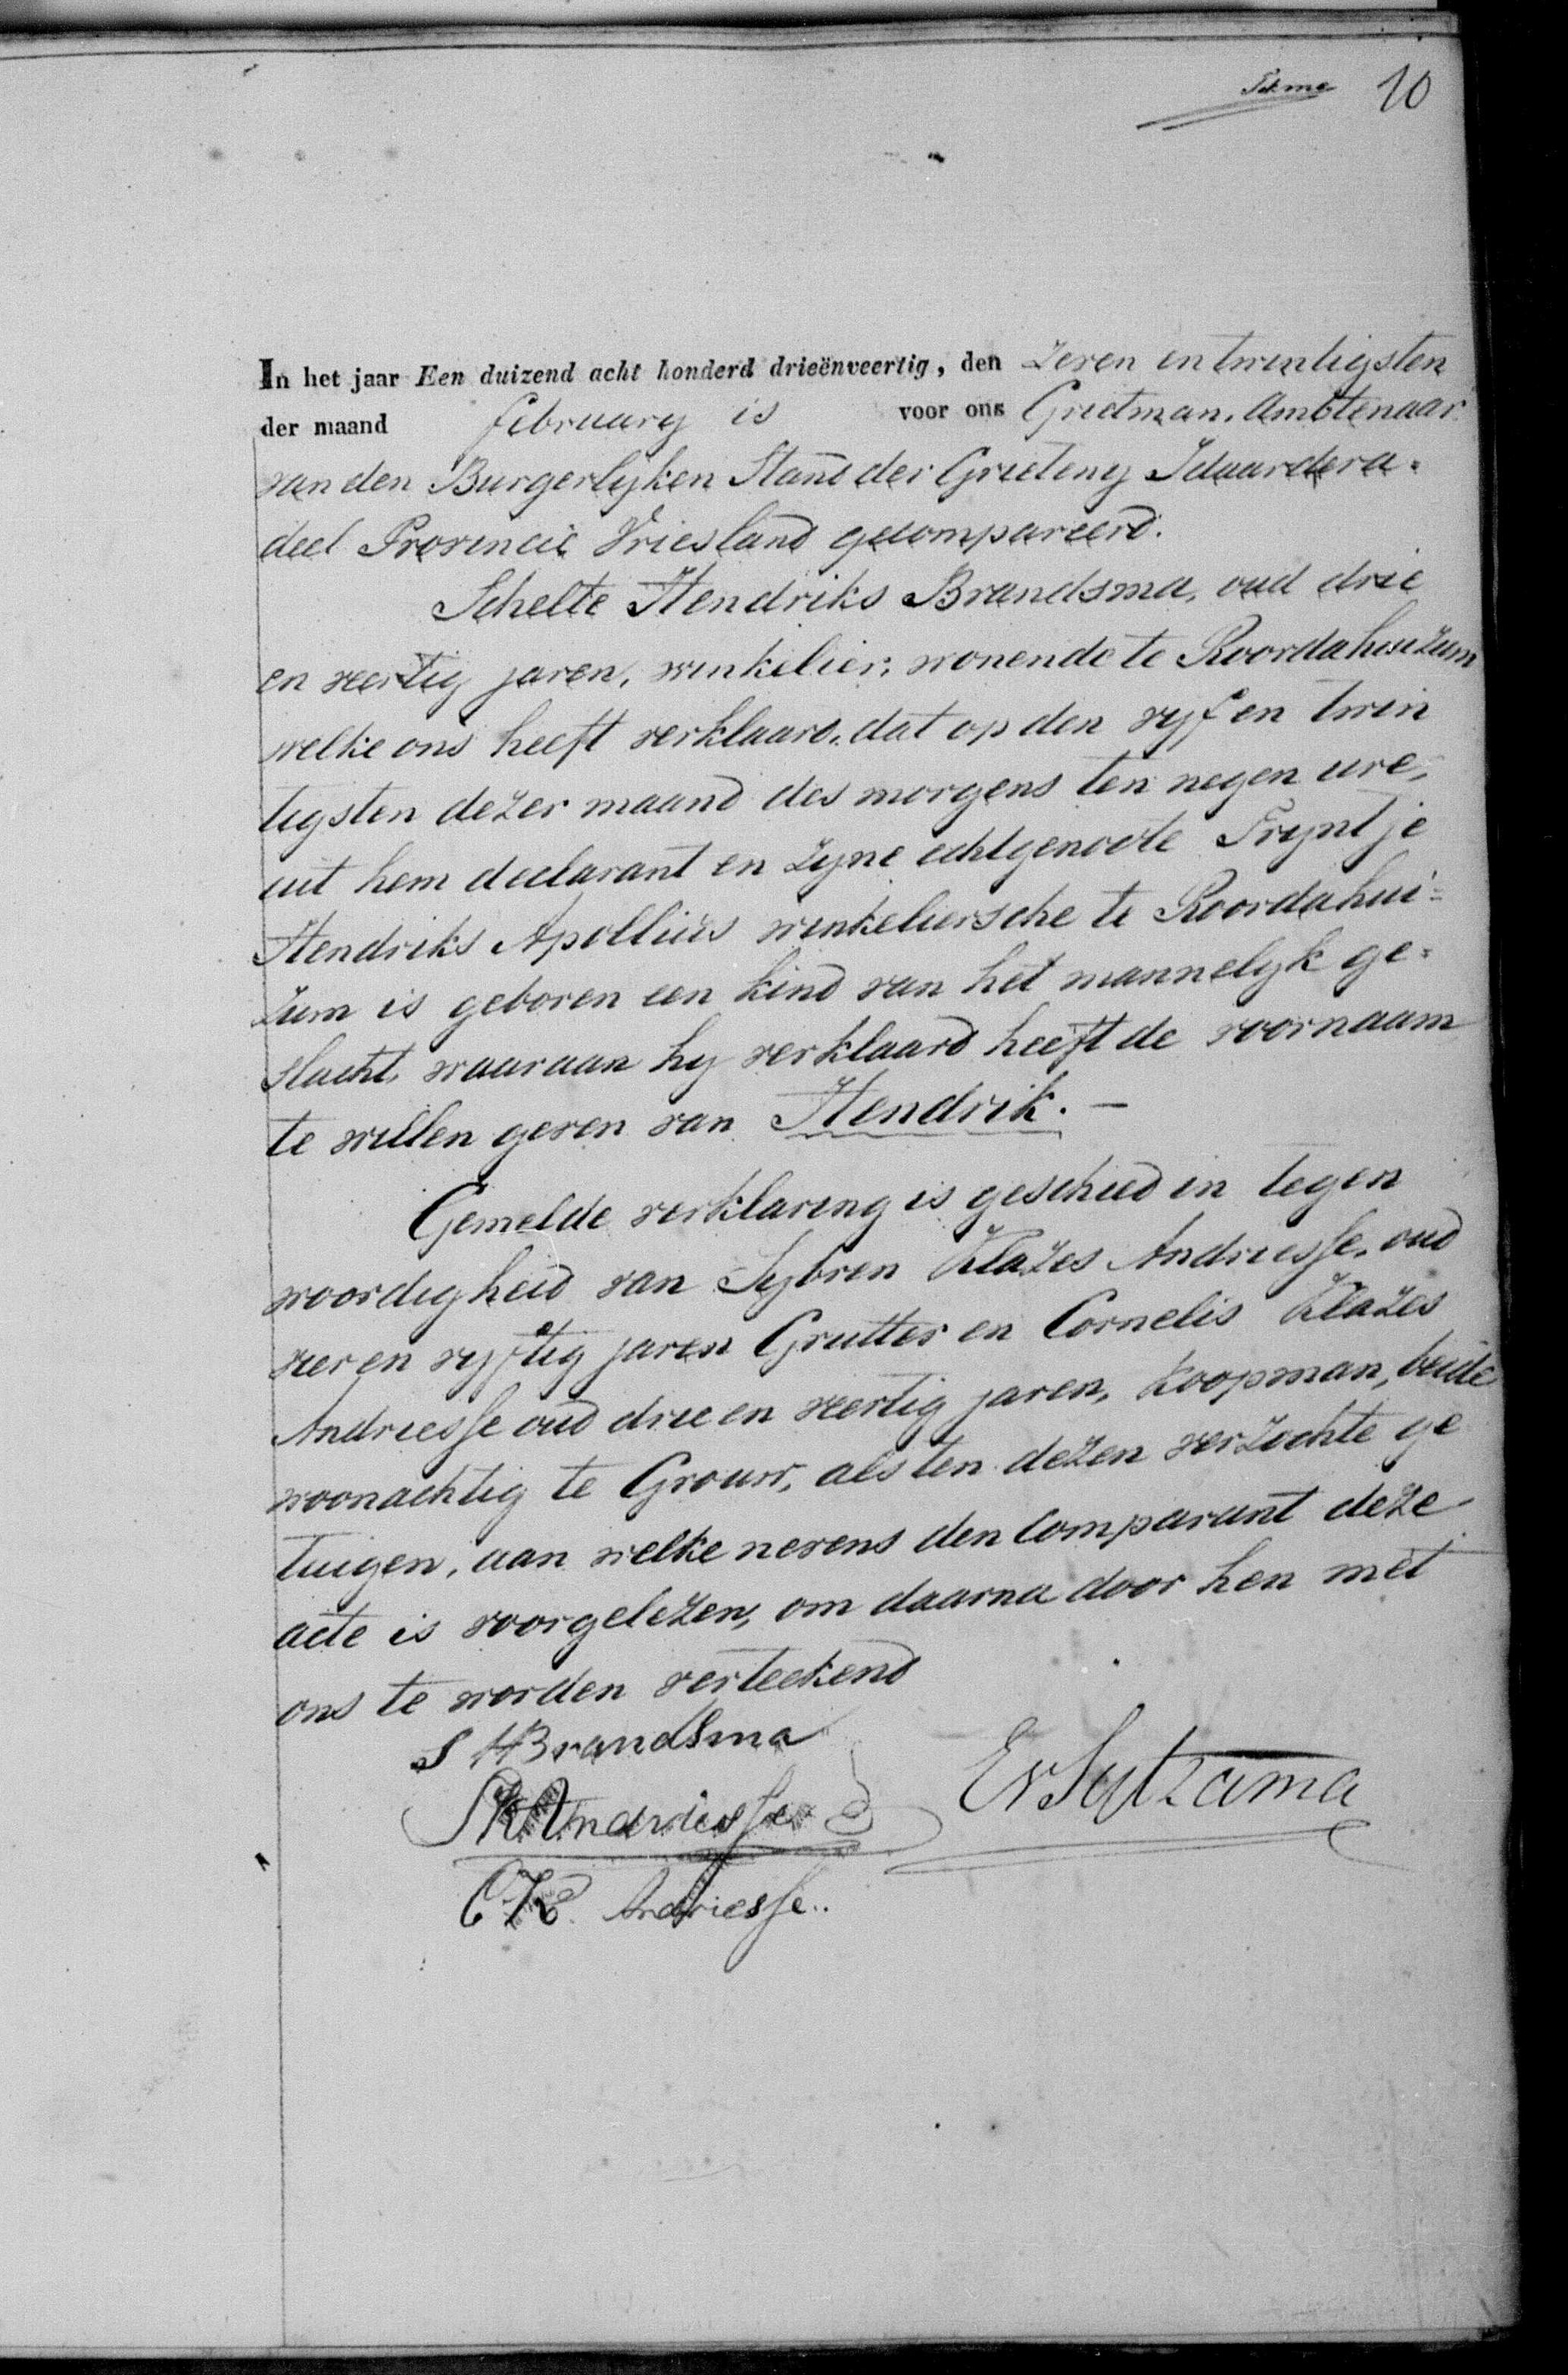 10
In het jaar Een duizend acht honderd drieënveertig, den zeven en twintigsten
der maand february is voor ons Grietman, Ambtenaar
van den Burgerlyken Stand der Grieteny Idaardera=
deel Provincie Vriesland gecompareerd.
Schelte Hendriks Brandsma, oud drie
en veertig jaren, winkelier, wonende te Roordahuizum
welke ons heeft verklaard, dat op den vyf en twin
tigsten dezer maand des morgens ten negen ure,
uit hem declarant en zyne echtgenoote Tryntje
Hendriks Apollius winkeliersche te Roordahui=
zum is geboren een kind van het mannelyk ge=
slacht, waaraan hy verklaard heeft de voornaam
te willen geven van Hendrik. —
Gemelde verklaring is geschied in tegen
woordigheid van Sybren Klazes Andriesse, oud
vier en vyftig jaren Grutter en Cornelis Klazes
Andriesse oud drie en veertig jaren, koopman, beide
woonachtig te Grouw, als ten dezen verzochte ge
tuigen, aan welke nevens den Comparant deze
acte is voorgelezen, om daarna door hen met
ons te worden verteekend
S H Brandsma
SK Andriesse
EvSytzama
CK. Andriesse..